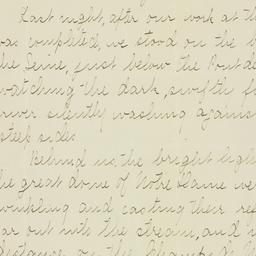 Last night, after our work at th
was completed, we stood on the b
the Seine, just below the Pont de
watching the dark, swiftly f
river silently washing agains
steep sides.
Behind us the bright ligh
the great dome of Notre Dame wer
twinkling and casting their re
far out into the stream, and i
distance on the Champs de